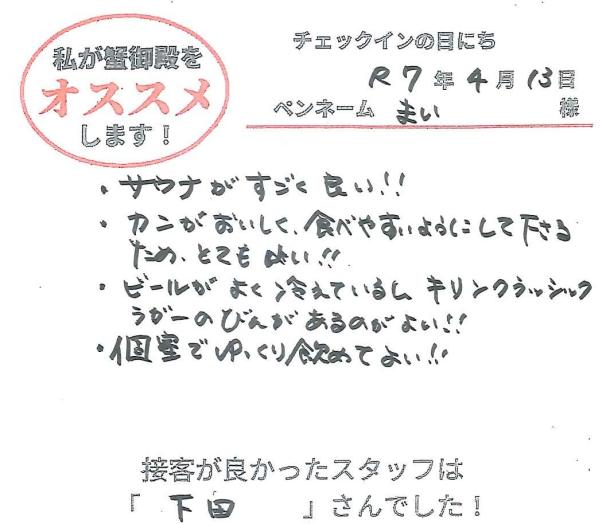 私が蟹御殿を
オススメ
します！
チェックインの日にち
R7年4月13日
ペンネーム まい 様
・サウナがすごく良い!!
・カニがおいしく、食べやすいようにして下さる
ため、とても良い!!
・ビールがよく冷えているし、キリンクラッシック
らがーのびんがあるのがよい!!
・個室でゆっくり飲めてよい!!
接客が良かったスタッフは
「 下田 」さんでした！